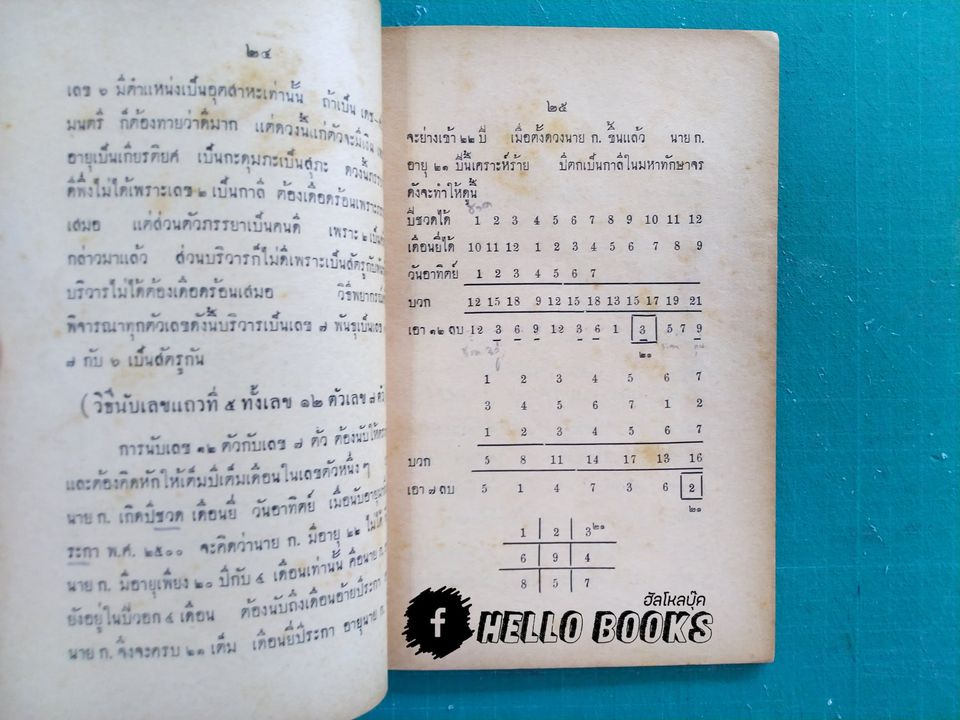 ๒๔
เลข ๖ มีตำแหน่งเป็นอุตสาหะเท่านั้น ถ้าเป็น เดช
มนตรี ก็ต้องทายว่าดีมาก แต่ดวงนี้แก่ตัวจะมีเงิน
อายุเป็นเกียรติยศ เป็นกะดุมภะเป็นสุภะ ดวงนี้
ดีพึ่งไม่ได้เพราะเลข ๒ เป็นกาลี ต้องเดือดร้อนเพราะ
เสมอ แต่ส่วนตัวภรรยาเป็นคนดี เพราะ ๒ เป็น
กล่าวมาแล้ว ส่วนบริวารก็ไม่ดีเพราะเป็นสัตรูกับ
บริวารไม่ได้ต้องเดือดร้อนเสมอ วิธีพยากรณ์
พิจารณาทุกตัวเลขดังนี้บริวารเป็นเลข ๗ พันธุเป็นเลข
๗ กับ ๖ เป็นสัตรูกัน
(วิธีนับเลขแถวที่ ๕ ทั้งเลข ๑๒ ตัวเลข ๗ ตัว
การนับเลข ๑๒ ตัวกับเลข ๗ ตัว ต้องนับให้
และต้องคิดหักให้เต็มปีเต็มเดือนในเลขตัวหนึ่งๆ
นาย ก. เกิดปีชวด เดือนยี่ วันอาทิตย์ เมื่อนับอายุ
ระกา พ.ศ. ๒๕๐๐ จะคิดว่านาย ก. มีอายุ ๒๒ ไม่ได้
นาย ก. มีอายุเพียง ๒๐ ปีกับ ๔ เดือนเท่านั้น คือนาย ก.
ยังอยู่ในปีวอก ๔ เดือน ต้องนับถึงเดือนอ้ายปีระกา
นาย ก. จึงจะครบ ๒๑ เต็ม เดือนยี่ปีระกา อายุนาย ก.
๒๕
จะย่างเข้า ๒๒ ปี เมื่อตั้งดวงนาย ก. ขึ้นแล้ว นาย ก.
อายุ ๒๑ ปีนี้เคราะห์ร้าย ปีตกเป็นกาลีในมหาทักษาจร
ดังจะทำให้ดูนี้
ปีชวดได้ 1 2 3 4 5 6 7 8 9 10 11 12
เดือนยี่ได้ 10 11 12 1 2 3 4 5 6 7 8 9
วันอาทิตย์ 1 2 3 4 5 6 7
บวก 12 15 18 9 12 15 18 13 15 17 19 21
เอา ๑๒ ลบ 12 3 6 9 12 3 6 1 3 5 7 9
๒๑
1 2 3 4 5 6 7
3 4 5 6 7 1 2
1 2 3 4 5 6 7
บวก 5 8 11 14 17 13 16
เอา ๗ ลบ 5 1 4 7 3 6 2
๒๑
1 2 3 ๒๑
6 9 4
8 5 7
ฮัลโหลบุ๊ค
f HELLO BOOKS